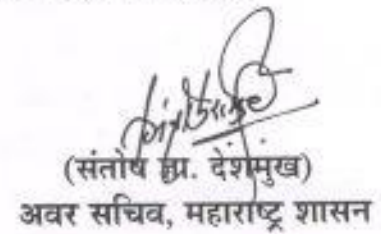 (संतोष प्र. देशमुख)
अवर सचिव, महाराष्ट्र शासन